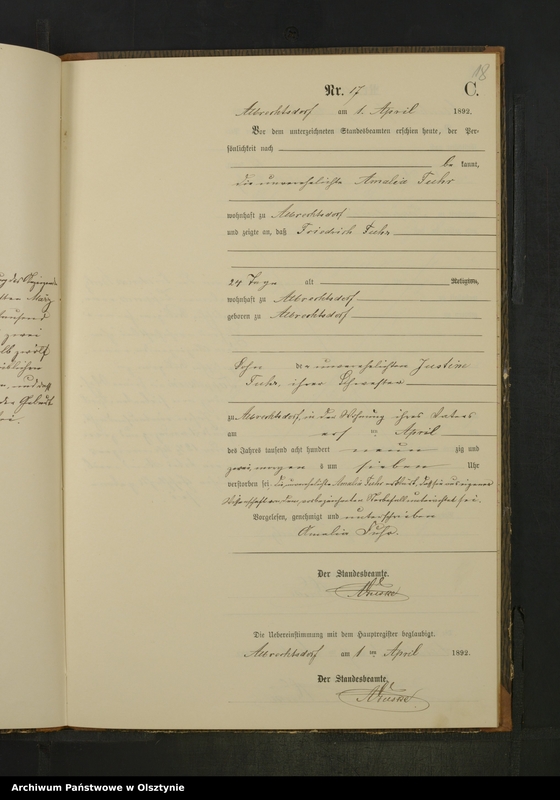 18
Nr. 17 C.
Albrechtsdorf am 1. April 1892.
Vor dem unterzeichneten Standesbeamten erschien heute, der Per-
sönlichkeit nach
be kannt,
die unverehelichte Amalie Fuhr
wohnhaft zu Albrechtsdorf
und zeigte an, daß Friedrich Fuhr
24 Tage alt Religion,
wohnhaft zu Albrechtsdorf
geboren zu Albrechtsdorf
Sohn der unverehelichten Justine
Fuhr, ihrer Schwester
zu Albrechtsdorf, in der Wohnung ihres Vaters
am ten April
des Jahres tausend acht hundert neun zig und
zwei morgens um sieben Uhr
verstorben sei. Die unverehelichte Amalie Fuhr erklärt, daß sie aus eigener
Wissenschaft von dem Sterbefall unterrichtet sei.
Vorgelesen, genehmigt und unterschrieben
Amalie Fuhr.
Der Standesbeamte.
Die Uebereinstimmung mit dem Hauptregister beglaubigt.
Albrechtsdorf am 1 ten April 1892.
Der Standesbeamte.
Archiwum Państwowe w Olsztynie